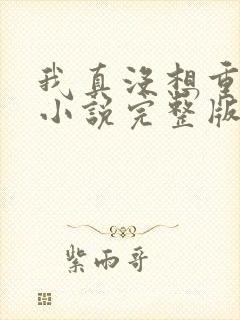 我真没想重
小说完整版
紫雨哥